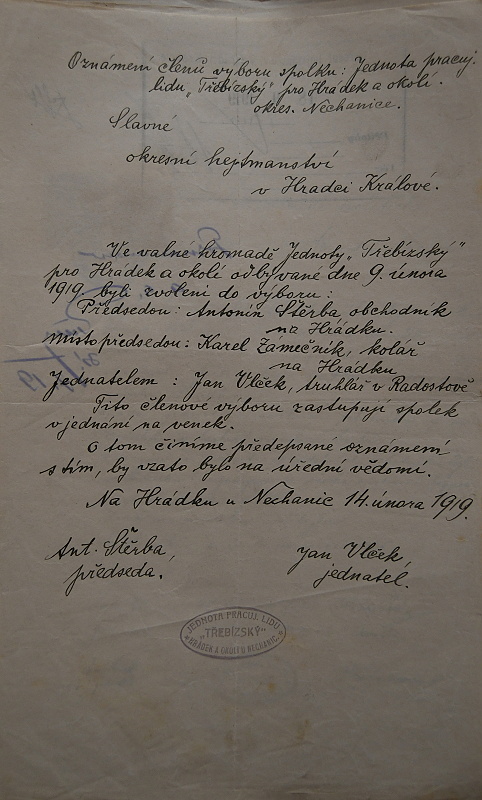 Oznámení členů výboru spolku: Jednota pracuj.
lidu „Třebízský" pro Hrádek a okolí.
okres. Nechanice.
Slavné
okresní hejtmanství
v Hradci Králové.
Ve valné hromadě Jednoty „Třebízský"
pro Hrádek a okolí odbývané dne 9. února
1919 byli zvoleni do výboru:
Předsedou: Antonín Štěrba, obchodník
na Hrádku.
Místopředsedou: Karel Zámečník, kolář
na Hrádku
Jednatelem: Jan Vlček, truhlář v Radostově
Tito členové výboru zastupují spolek
v jednání na venek.
O tom činíme předepsané oznámení
s tím, by vzato bylo na úřední vědomí.
Na Hrádku u Nechanic 14. února 1919.
Ant. Štěrba,
předseda.
Jan Vlček,
jednatel.
JEDNOTA PRACUJ. LIDU
"TŘEBÍZSKÝ"
HRÁDEK A OKOLÍ U NECHANIC.